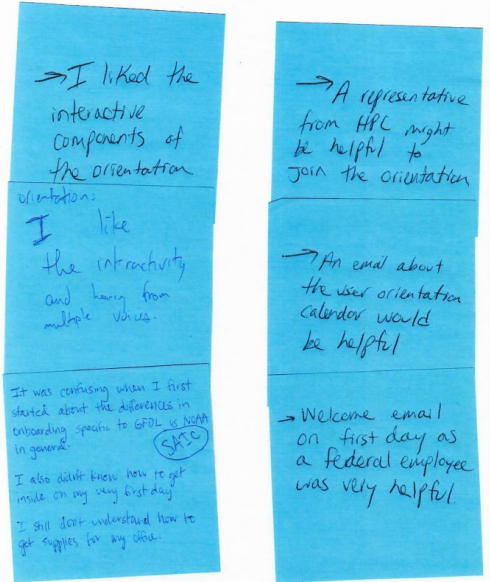 → I liked the
interactive
components of
the orientation
orientation:
I like
the intractivity
and hearing from
multiple voices.
It was confusing when I first
started about the differences in
onboarding specific to GFDL vs NOAA
in general.
SAIC
I also didn't know how to get
inside on my very first day
I still don't understand how to
get supplies for my office.
→ A representative
from HPC might
be helpful to
join the orientation
→ An email about
the user orientation
calendar would
be helpful
→ Welcome email
on first day as
a federal employee
was very helpful.